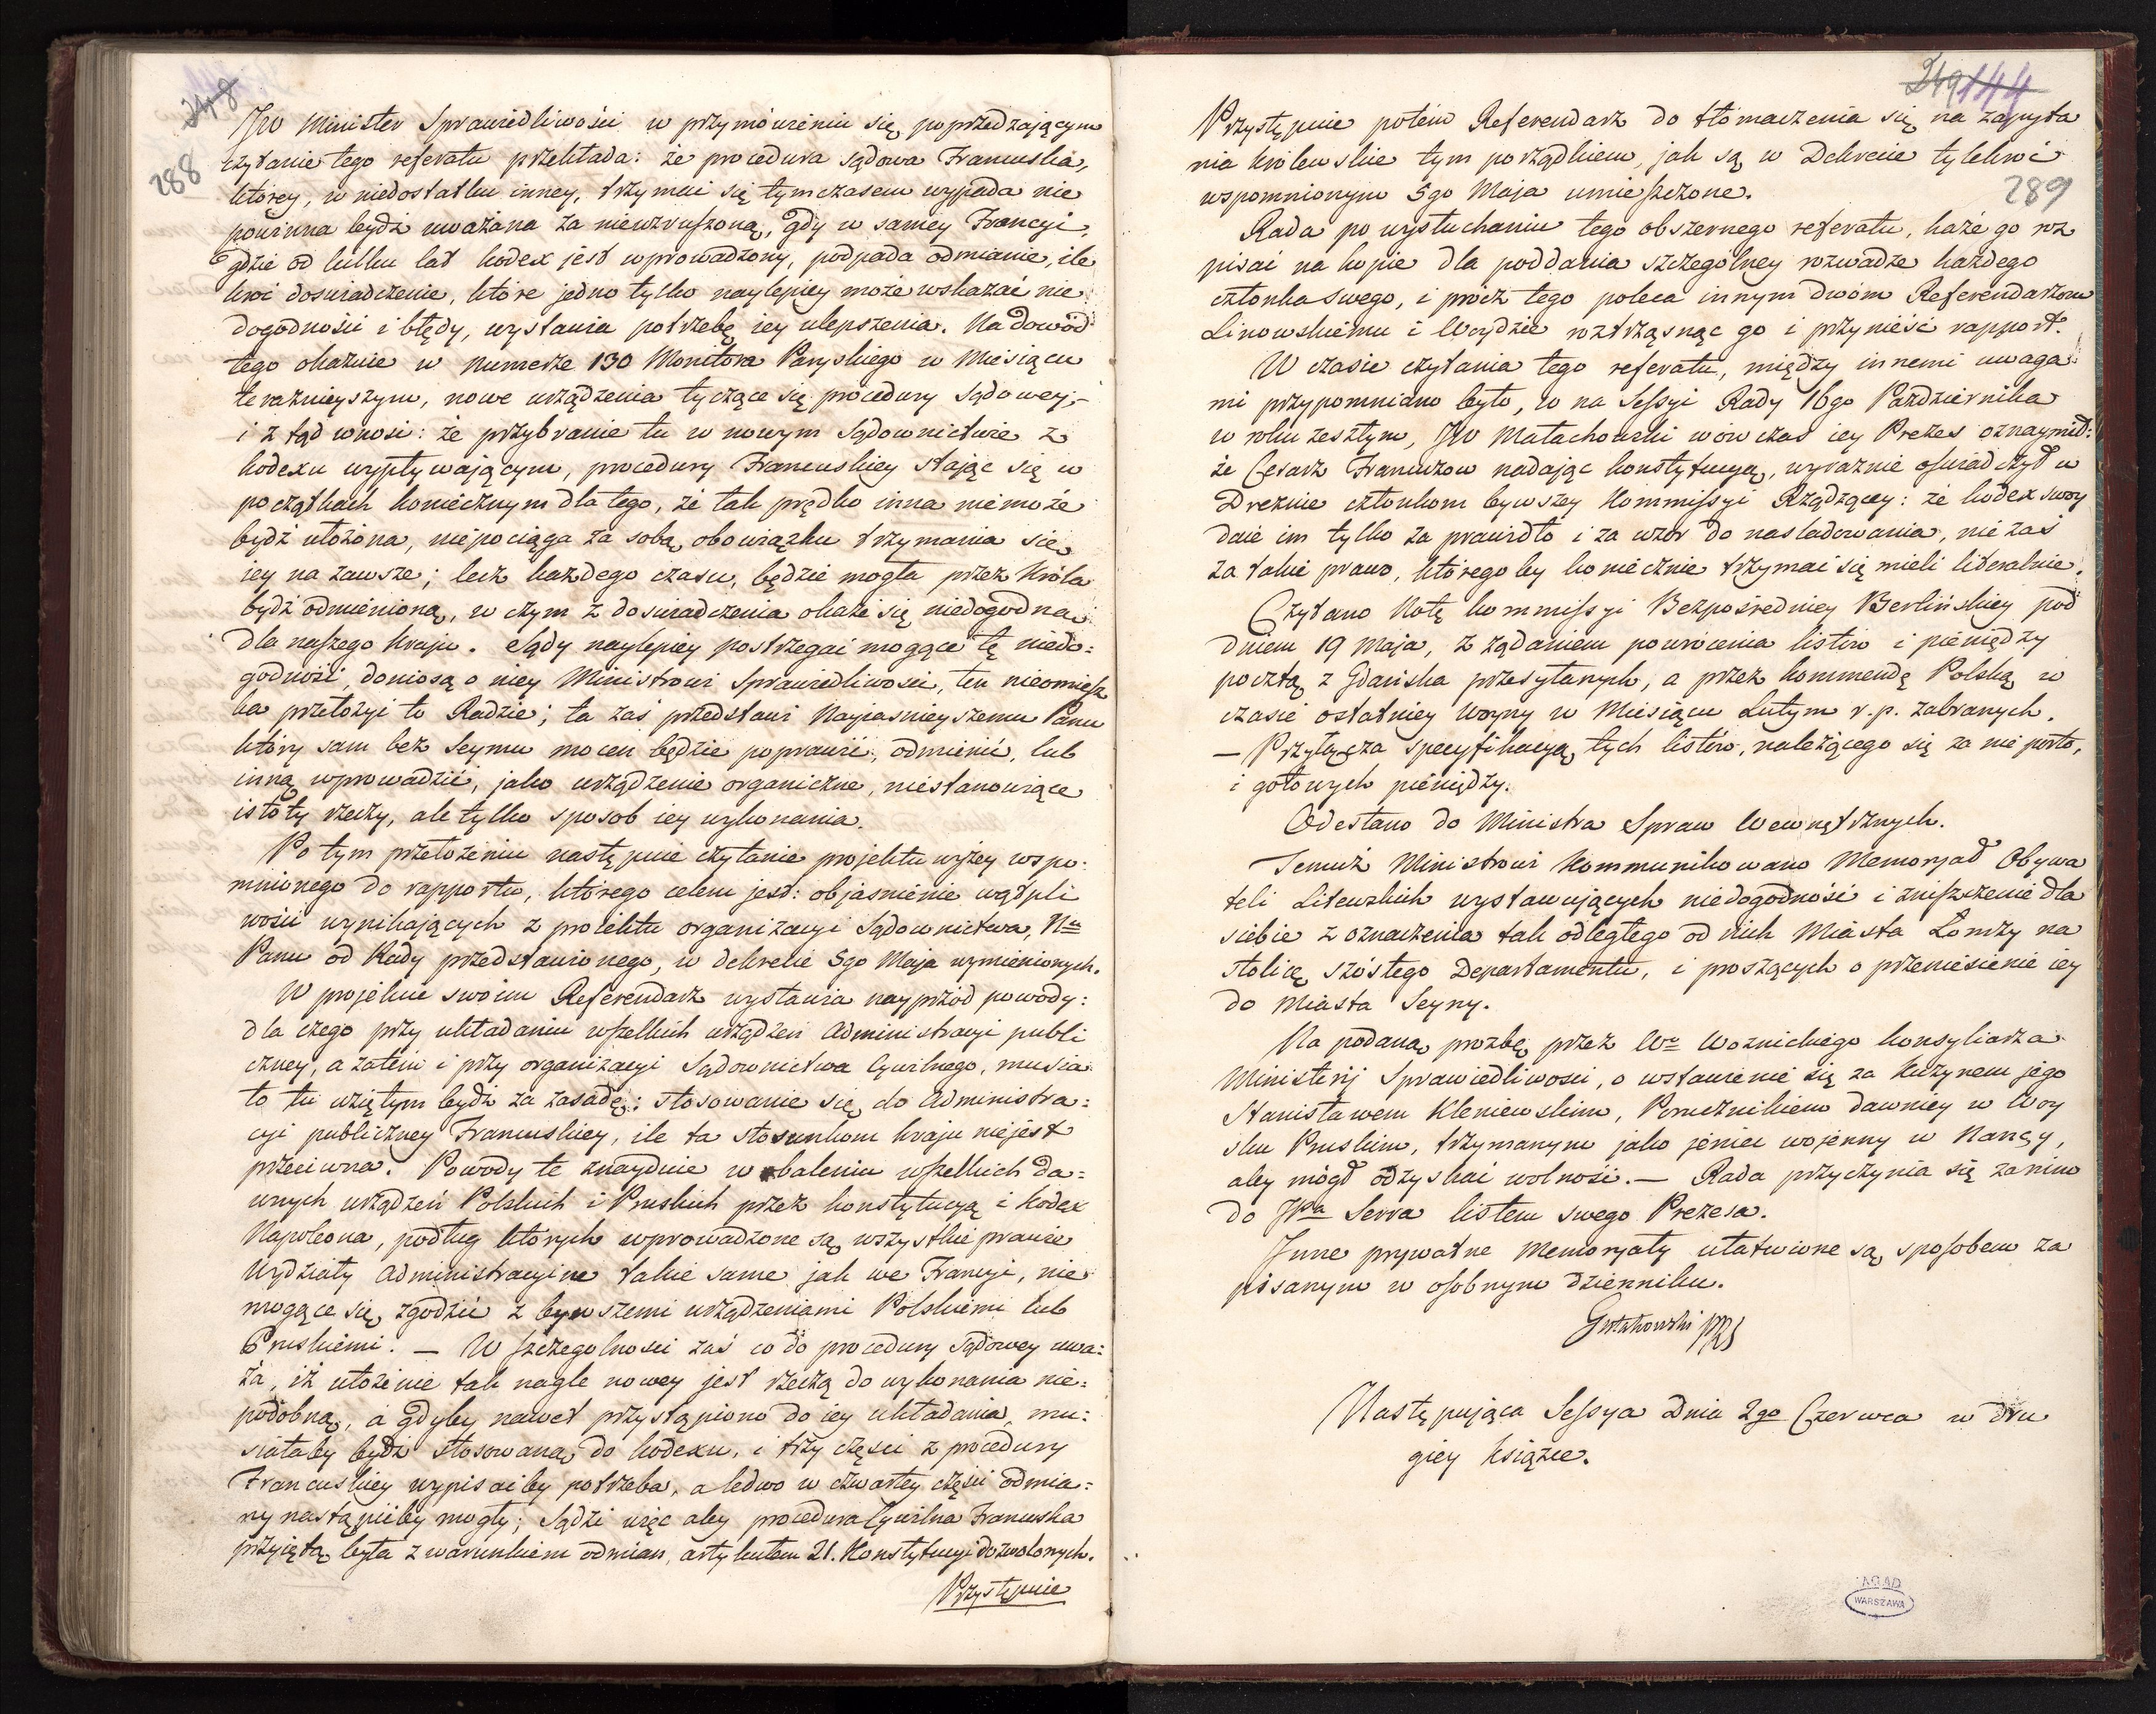 248
288
JW Minister Sprawiedliwości w przymówieniu się poprzedzającym
czytanie tego referatu przekłada: że procedura sądowa Francuska,
którey, w niedostatku inney, trzymać się tymczasem wypada nie
powinna bydź uważana za niewzruszoną, gdy w samey Francyi,
gdzie od kilku lat kodex jest wprowadzony, podpada odmianie, ile
kroć doświadczenie, które jedno tylko naylepiey może wskazać nie
dogodności i błędy, wystawia potrzebę iey ulepszenia. Na dowód
tego okazuie w numerze 130 Monitora Paryskiego w Miesiącu
teraznieyszym, nowe urządzenia tyczące się procedury sądowey,-
i z tąd wnosi: że przybranie tu w nowym sądownictwie z
kodexu wypływającym, procedury Francuskiey stając się w
początkach koniecznym dla tego, że tak prędko inna nie może
bydź ułożona, nie pociąga za sobą obowiązku trzymania się
iey na zawsze; lecz każdego czasu, będzie mogła przez Króla
bydź odmienioną, w czym z doświadczenia okaże się niedogodna
dla naszego kraju. Sądy naylepiey postrzegać mogące tę niedo:
godność, doniosą o niey Ministrowi Sprawiedliwosci, ten nieomiesz
ka przełożyć to Radzie; ta zaś przedstawi Nayiasnieyszemu Panu
który sam bez Seymu mocen będzie poprawić, odmienić, lub
inną wprowadzić, jako urządzenie organiczne, niestanowiące
istoty rzeczy, ale tylko sposob iey wykonania.
Po tym przełożeniu następuie czytanie projektu wyżey wspo:
mnionego do rapportu, którego celem jest: objasnienie wątpli
wości wynikających z projektu organizacyi Sądownictwa, Nmu
Panu od Rady przedstawionego, w dekrecie 5go Maja wymienionych.
W projekcie swoim Referendarz wystawia nayprzód powody:
dla czego przy układaniu wszelkich urządzeń administracyi publi
czney, a zatem i przy organizacyi Sądownictwa Cywilnego, musia
to tu wziętym bydź za zasadę: stosowanie się do administra:
cyi publiczney Francuskiey, ile ta stosunkom kraju niejest
przeciwna. Powody te znayduie w obaleniu wszelkich da:
wnych urządzeń Polskich i Pruskich przez konstytucyą i Kodex
Napoleona, podług których wprowadzone są wszystkie prawie
Wydziały administracyine takie same jak we Francyi, nie
mogące się zgodzić z bywszemi urządzeniami Polskiemi lub
Pruskiemi. — W szczegolnosci zaś co do procedury sądowey uwa:
ża, iż ułożenie tak nagle nowey jest rzeczą do wykonania nie:
podobną, a gdyby nawet przystąpiono do iey układania, mu:
siałaby bydź stosowaną do kodexu, i trzy części z procedury
Francuskiey wypisać by potrzeba, a ledwo w czwartey części odmia:
ny nastąpić by mogły; sądzi więc aby procedura Cywilna Francuska
przyiętą była z warunkiem odmian, artykułem 21. Konstytucyi dozwolonych.
Przystępuie
249 144
289
Przystępuie potém Referendarz do tłómaczenia się na zapyta
nia królewskie tym porządkiem, jak są w Dekrecie tylekroć
wspomnionym 5go Maja umieszczone.
Rada po wysłuchaniu tego obszernego referatu, każe go roz
pisać na kopie dla poddania szczególney rozwadze każdego
członka swego, i prócz tego poleca innym dwóm Referendarzom
Linowskiemu i Woydzie roztrząsnąć go i przynieść rapport.
W czasie czytania tego referatu, między innemi uwaga:
mi przypomniano było, co na Sessyi Rady 16go Października
w roku zeszłym, JW Małachowski wówczas iey Prezes oznaymił:
że Cesarz Francuzow nadając konstytucyą, wyraznie oświadczył w
Dreznie członkom bywszey Kommissyi Rządzącey: że kodex swoy
daie im tylko za prawidło i za wzór do nasladowania, nie zaś
za takie prawo, którego by koniecznie trzymać się mieli literalnie.
Czytano Notę kommissyi Bezpośredniey Berlińskiey pod
dniem 19 Maja, z żądaniem powrócenia listów i pieniędzy
pocztą z Gdańska przesyłanych, a przez kommendę Polską w
czasie ostatniey woyny w Miesiącu Lutym r. p. zabranych.
— Przyłącza specyfikacyą tych listów, należącego się za nie porto,
i gotowych pieniędzy.
Odesłano do Ministra Spraw Wewnętrznych.
Temuż Ministrowi kommunikowano Memoryał Obywa
teli Litewskich wystawujących niedogodność i zniszczenie dla
siebie z oznaczenia tak odległego od nich Miasta Łomży na
stolicę szóstego Departamentu, i proszących o przeniesienie iey
do Miasta Seyny.
Na podaną prozbę przez Wo Woznickiego konsyliarza
Ministerij Sprawiedliwosci, o wstawienie się za Kuzynem jego
Stanisławem Kleniewskim, Porucznikiem dawniey w Woy
sku Pruskim, trzymanym jako jeniec wojenny w Nancy,
aby mógł odzyskać wolność. — Rada przyczynia się za nim
do JPa Serra listem swego Prezesa.
Inne prywatne Memoryały ułatwione są, sposobem za
pisanym w osobnym dzienniku.
Gutakowski PRS
Następująca Sessya dnia 2go Czerwca w dru
giey Książce.
AGAD
WARSZAWA